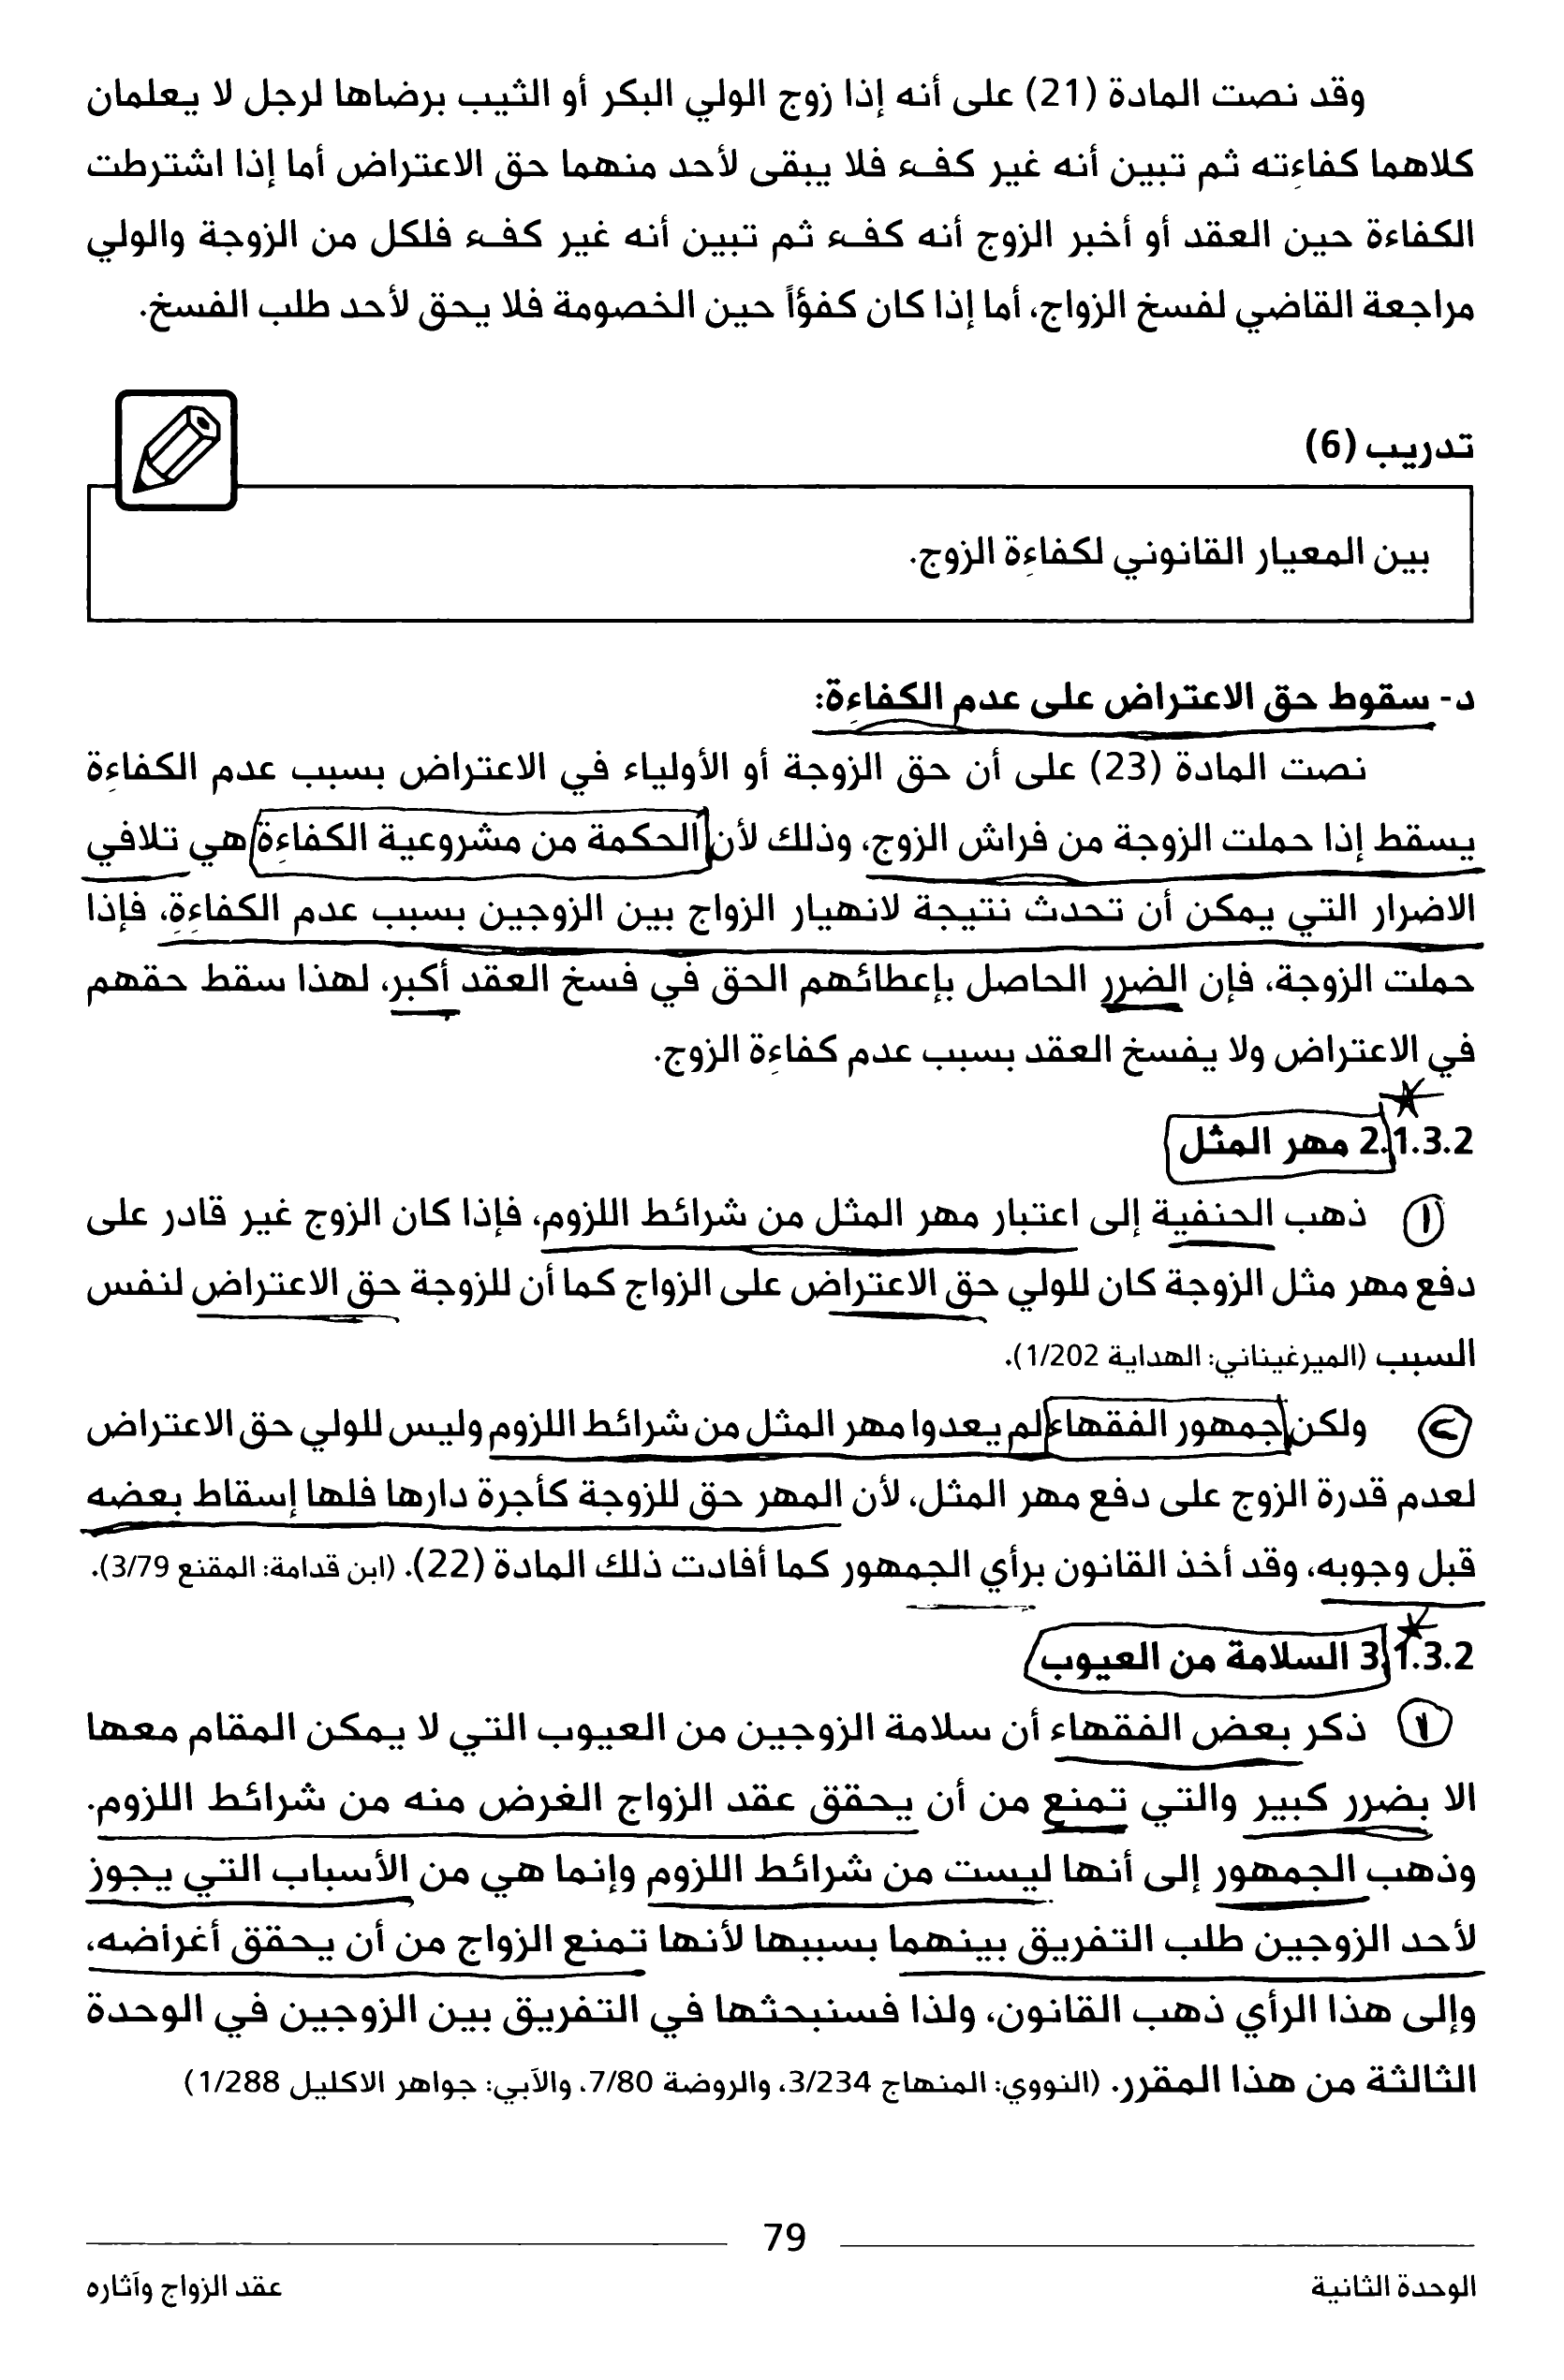 وقد نصت المادة (21) على أنه إذا زوج الولي البكر أو الثيب برضاها لرجل لا يعلمان
كلاهما كفاءته ثم تبين أنه غير كفء فلا يبقى لأحد منهما حق الاعتراض أما إذا اشترطت
الكفاءة حين العقد أو أخبر الزوج أنه كفء ثم تبين أنه غير كفء فلكل من الزوجة والولي
مراجعة القاضي لفسخ الزواج، أما إذا كان كفؤاً حين الخصومة فلا يحق لأحد طلب الفسخ.
تدريب (6)
بين المعيار القانوني لكفاءة الزوج.
د- سقوط حق الاعتراض على عدم الكفاءة:
نصت المادة (23) على أن حق الزوجة أو الأولياء في الاعتراض بسبب عدم الكفاءة
يسقط إذا حملت الزوجة من فراش الزوج، وذلك لأن الحكمة من مشروعية الكفاءة هي تلافي
الاضرار التي يمكن أن تحدث نتيجة لانهيار الزواج بين الزوجين بسبب عدم الكفاءة، فإذا
حملت الزوجة، فإن الضرر الحاصل بإعطائهم الحق في فسخ العقد أكبر، لهذا سقط حقهم
في الاعتراض ولا يفسخ العقد بسبب عدم كفاءة الزوج.
2.1.3.2 مهر المثل
١ ذهب الحنفية إلى اعتبار مهر المثل من شرائط اللزوم، فإذا كان الزوج غير قادر على
دفع مهر مثل الزوجة كان للولي حق الاعتراض على الزواج كما أن للزوجة حق الاعتراض لنفس
السبب (الميرغيناني: الهداية 1/202).
٢ ولكن جمهور الفقهاء لم يعدوا مهر المثل من شرائط اللزوم وليس للولي حق الاعتراض
لعدم قدرة الزوج على دفع مهر المثل، لأن المهر حق للزوجة كأجرة دارها فلها إسقاط بعضه
قبل وجوبه، وقد أخذ القانون برأي الجمهور كما أفادت ذلك المادة (22). (ابن قدامة: المقنع 3/79).
3.1.3.2 السلامة من العيوب
١ ذكر بعض الفقهاء أن سلامة الزوجين من العيوب التي لا يمكن المقام معها
الا بضرر كبير والتي تمنع من أن يحقق عقد الزواج الغرض منه من شرائط اللزوم.
وذهب الجمهور إلى أنها ليست من شرائط اللزوم وإنما هي من الأسباب التي يجوز
لأحد الزوجين طلب التفريق بينهما بسببها لأنها تمنع الزواج من أن يحقق أغراضه،
وإلى هذا الرأي ذهب القانون، ولذا فسنبحثها في التفريق بين الزوجين في الوحدة
الثالثة من هذا المقرر. (النووي: المنهاج 3/234، والروضة 7/80، والآبي: جواهر الاكليل 1/288)
79
الوحدة الثانية
عقد الزواج وآثاره